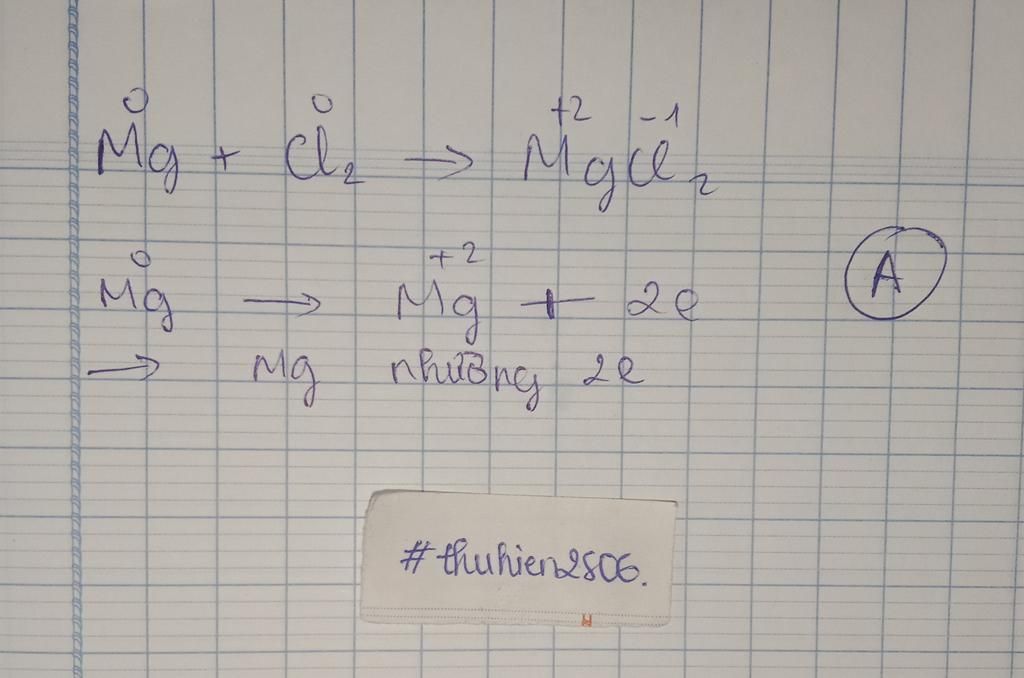 0 0 +2 -1
Mg + Cl₂ → MgCl₂
0 +2
Mg → Mg + 2e
A
→ Mg nhường 2e
#thuhien2806.